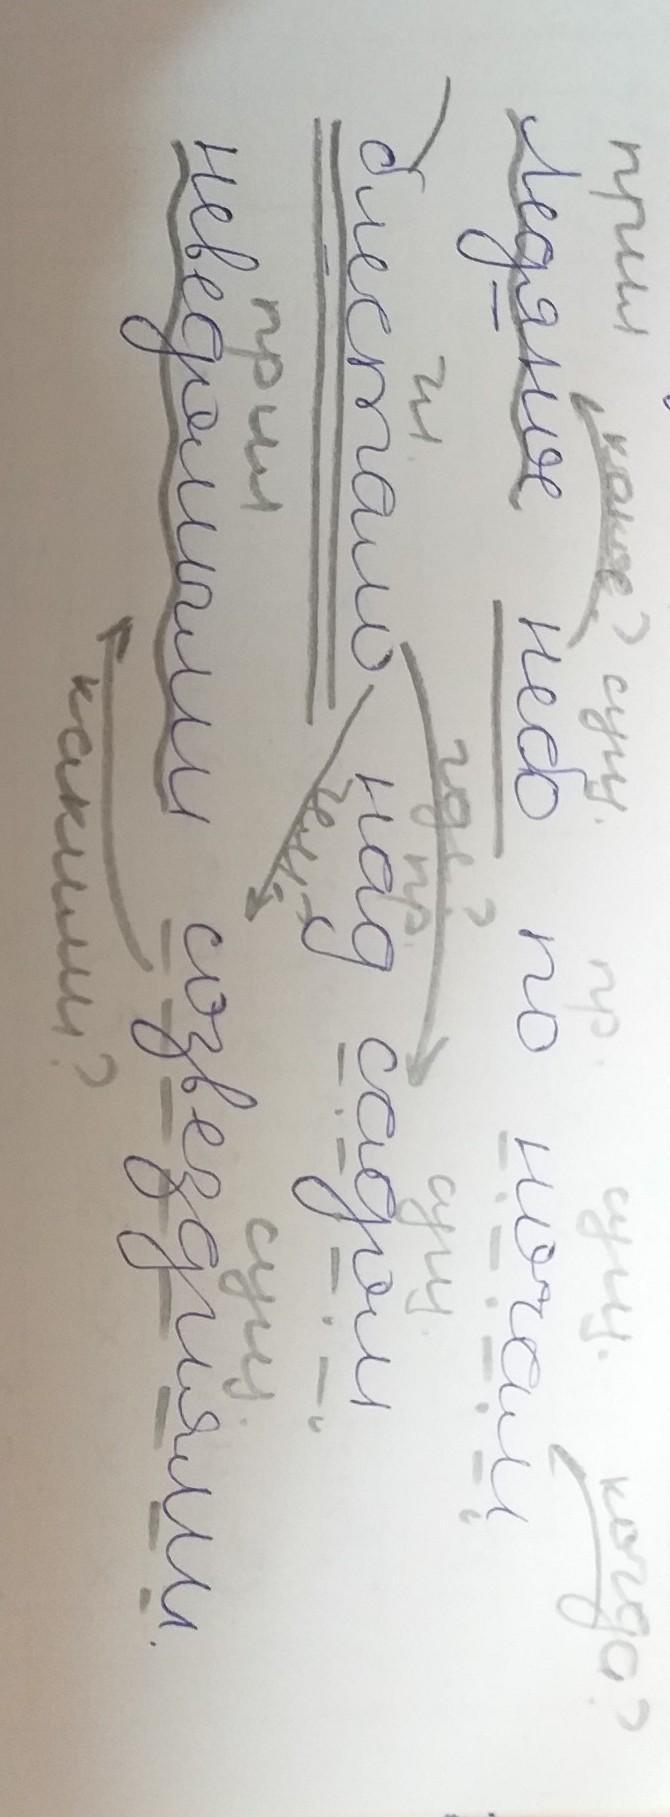 прил какое? сущ. пр. сущ. когда?
Ледяное небо по ночам
гл. где? пр. сущ.
блестало над садом
прил чем? сущ.
неведомыми созвездиями.
какими?